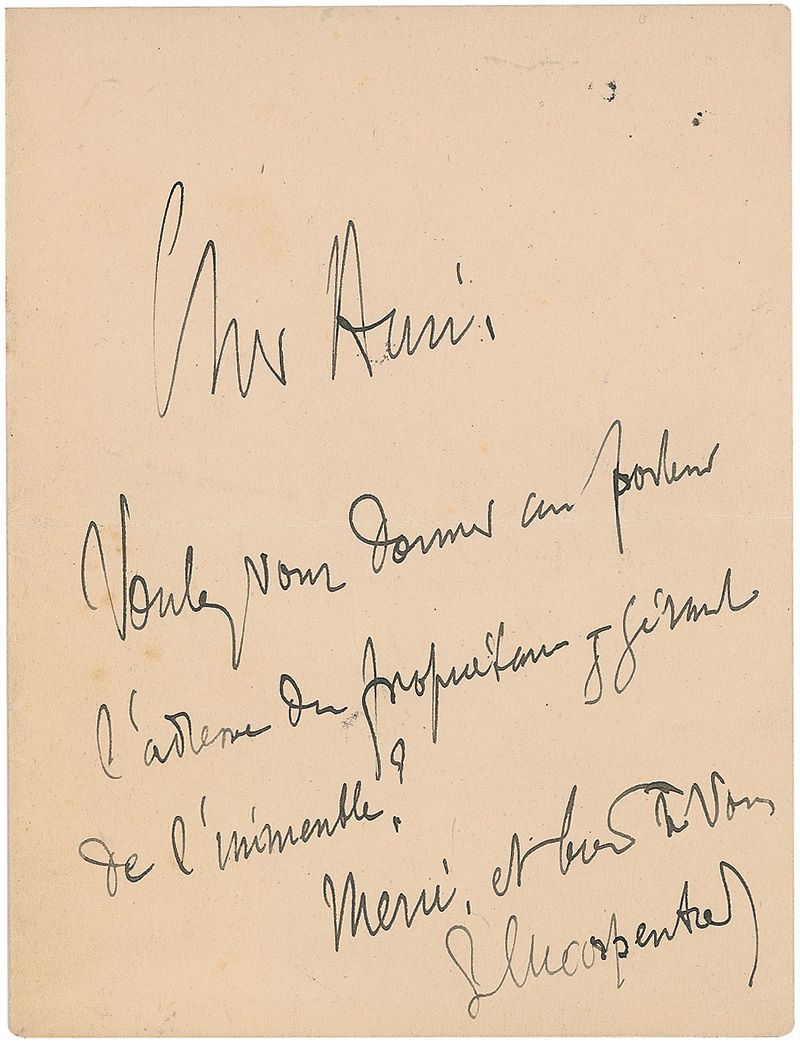 Cher Ami,
Voulez vous donner au porteur
l'adresse du propriétaire gérant
de l'immeuble?
Merci, et bien à Vous